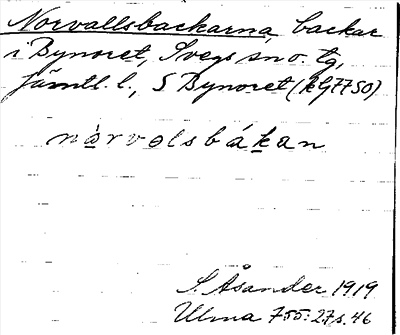 Norvallsbackarna, backar
i Bynoret, Svegs sn o. tg,
Jämtl. l., S Bynoret (kG7750)
nòrvolsbákan
S. Åsander 1919
Ulma 755:27 s. 46